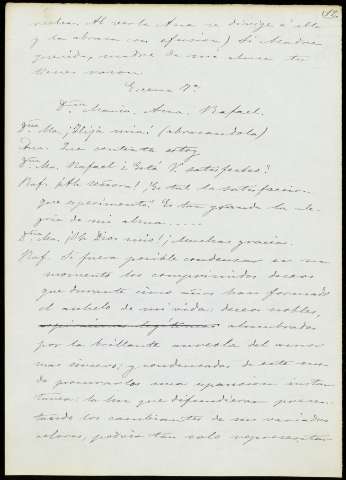 12.
recha. Al verla Ana se dirige á ella
y la abraza con efusion) Si Madre
querida, madre de mi alma tu
tienes razon.
Escena 7ª
Dña María, Ana, Rafael.
Dña Ma. ¡Hija mia! (abrazandola)
Ana. Que contenta estoy
Dña Ma. Rafael ¿Está V. satisfecho?
Raf. ¡Ah señora! ¡Es tal la satisfaccion
que esperimento! Es tan grande la ale-
gria de mi alma .....
Dña Ma. ¡Oh Dios mio! ¡Muchas gracias.
Raf. Si fuera posible condensar en un
momento los comprimidos deseos
que durante cinco años han formado
el anhelo de mi vida: deseos nobles,
aspiraciones legítimas alumbradas
por la brillante aureola del amor
mas sincero; y condensados de este mo-
do procurarlos una espansion instan-
tanea: la luz que difundieran presen-
tando los cambiantes de sus variados
colores, podria tan solo representar